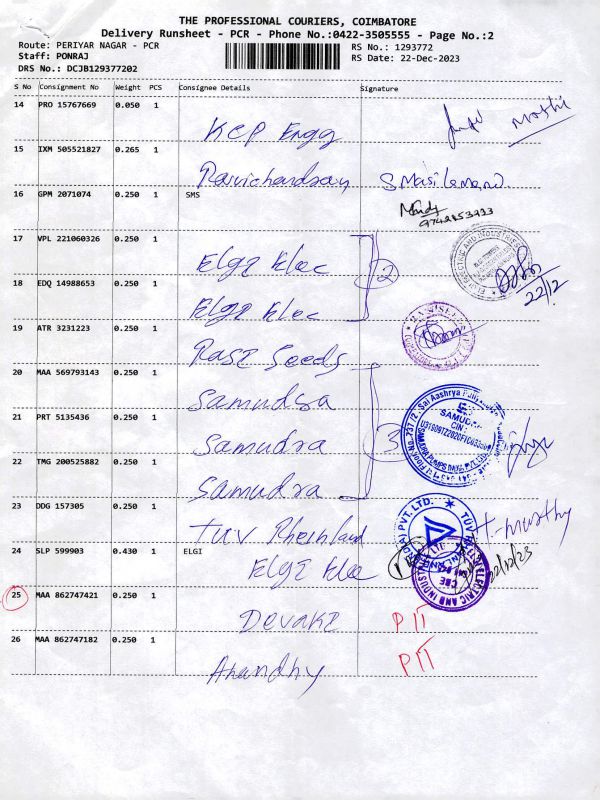 THE PROFESSIONAL COURIERS, COIMBATORE
Delivery Runsheet - PCR - Phone No.:0422-3505555 - Page No.:2
Route: PERIYAR NAGAR - PCR RS No.: 1293772
Staff: PONRAJ RS Date: 22-Dec-2023
DRS No.: DCJB129377202
S No Consignment No Weight PCS Consignee Details Signature
14 PRO 15767669 0.050 1
KCP Engg
15 IXM 505521827 0.265 1
Ravichandran S Masilamani
16 GPM 2071074 0.250 1 SMS
9742853933
17 VPL 221060326 0.250 1
Elgi Elec 2
22/12
18 EDQ 14988653 0.250 1
Elgi Elec
19 ATR 3231223 0.250 1
Rasi Seeds
20 MAA 569793143 0.250 1
Samudra 3
21 PRT 5135436 0.250 1
Samudra
22 TMG 200525882 0.250 1
Samudra
23 DDG 157305 0.250 1
TUV Rheinland H. Murthy
24 SLP 599903 0.430 1 ELGI
Elgi Elec 22/12/23
25 MAA 862747421 0.250 1
Devaki PTT
26 MAA 862747182 0.250 1
Anandhy PTT